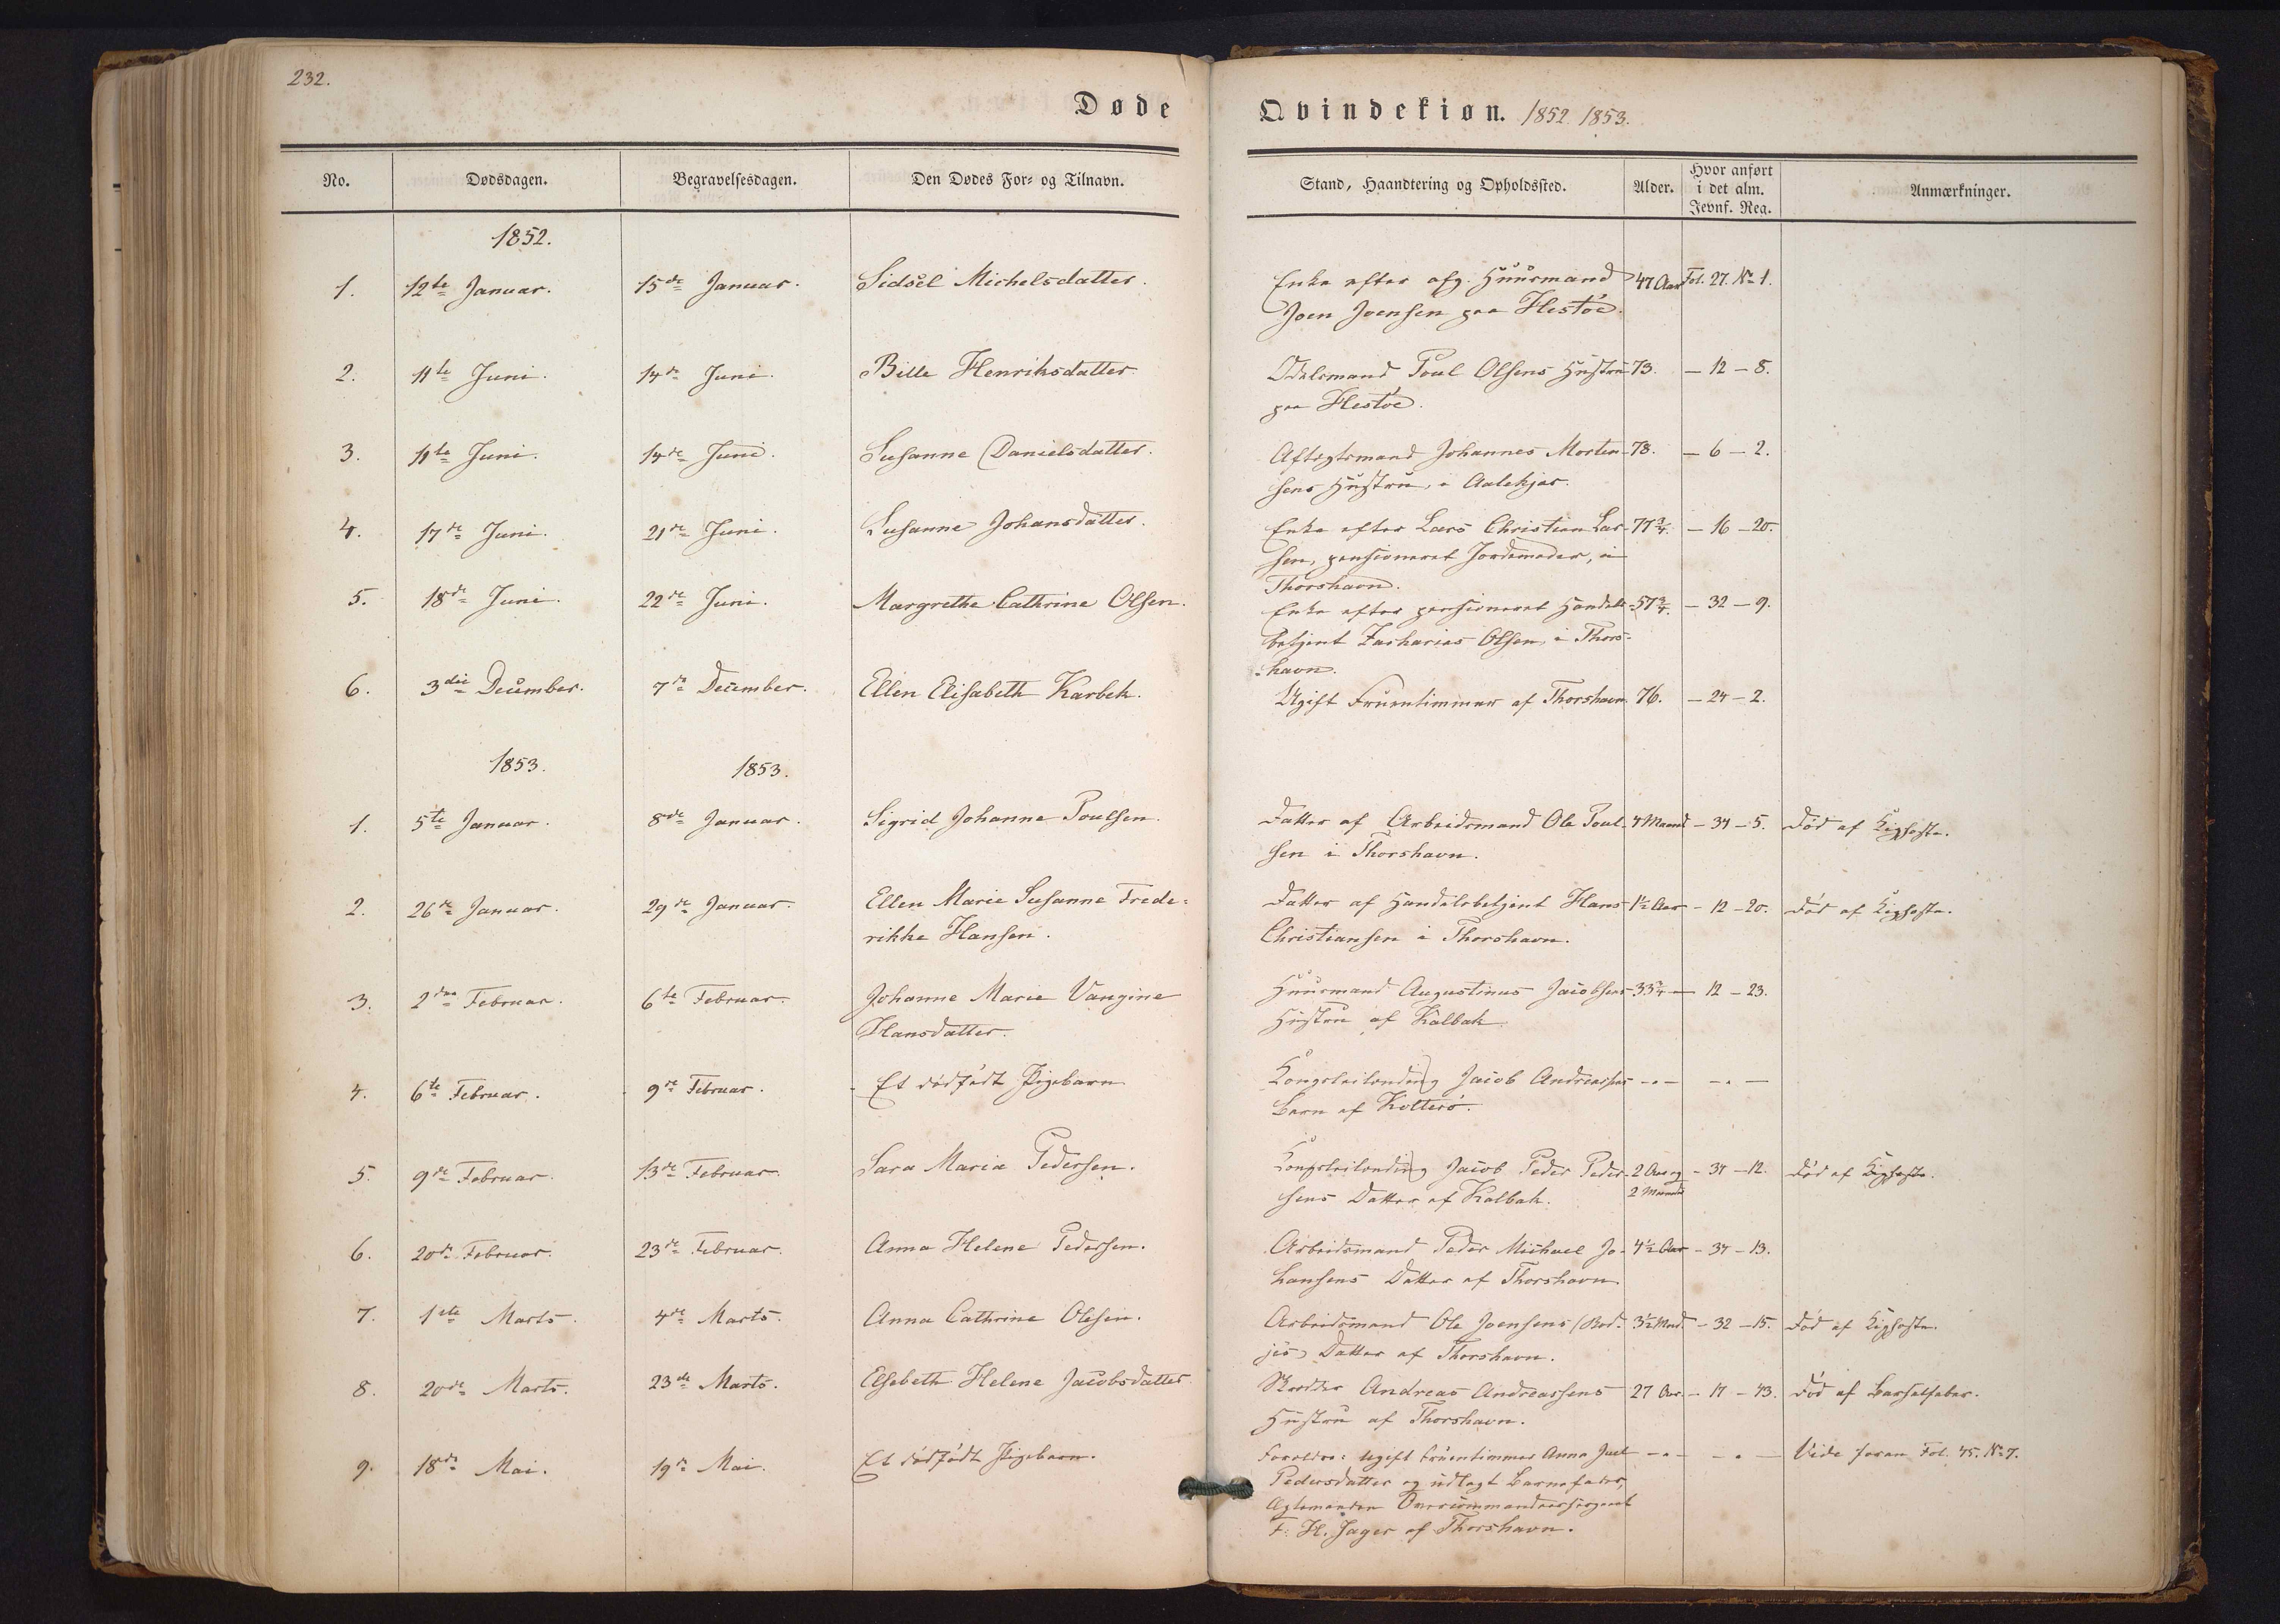 232.
Døde Qvindekiøn. 1852. 1853.
No. Dødsdagen. Begravelsesdagen. Den Dødes For- og Tilnavn. Stand, Haandtering og Opholdssted. Alder. Hvor anført i det alm. Jevnf. Reg. Anmærkninger.
1852.
1. 12te Januar. 15de Januar. Sidsel Michelsdatter. Enke efter afg. Huusmand 47 Aar Fol. 27. No 1.
Joen Joensen paa Hestøe.
2. 11te Juni. 14de Juni. Bille Henriksdatter Odelsmand Poul Olsens Hustru 73. — 12 — 8.
paa Hestøe.
3. 11te Juni. 14de Juni. Susanne Danielsdatter. Aftægtsmand Johannes Morten- 78. — 6 — 2.
sens Hustru, i Aalekjær.
4. 17de Juni. 21de Juni. Susanne Johansdatter. Enke efter Lars Christian Lar- 77 3/4. — 16 — 20.
sen, pensioneret Jordemoder, i
Thorshavn.
5. 18de Juni. 22de Juni. Margrethe Cathrine Olsen. Enke efter pensioneret Handels- 57 3/4. — 32 — 9.
betjent Zacharias Olsen, i Thors-
havn.
6. 3die December. 7de December. Ellen Elisabeth Karbek. Ugift Fruentimmer af Thorshavn 76. — 24 — 2.
1853. 1853.
1. 5te Januar. 8de Januar. Sigrid Johanne Poulsen. Datter af Arbeidsmand Ole Poul- 4 Maand — 34 — 5. Død af Kighoste.
sen i Thorshavn.
2. 26de Januar. 29de Januar. Ellen Marie Susanne Frede- Datter af Handelsbetjent Hans 1½ Aar — 12 — 20. Død af Kighoste.
rikke Hansen. Christiansen i Thorshavn.
3. 2den Februar. 6te Februar. Johanne Marie Vangine Huusmand Augustinus Jacobsens 33 3/4 — 12 — 23.
Hansdatter. Hustru af Kalbak.
4. 6te Februar. 9de Februar. Et dødfødt Pigebarn Kongsleilending Jacob Andreasens — " — — " —
Barn af Kolterø.
5. 9de Februar. 13de Februar. Sara Maria Pedersen. Kongsleilending Jacob Peder Peder- 2 Aar og — 34 — 12. Død af Kighoste.
sens Datter af Kalbak. 2 Maaned
6. 20de Februar. 23de Februar. Anna Helene Pedersen. Arbeidsmand Peder Michael Jo- 4½ Aar — 34 — 13.
hansens Datter af Thorshavn
7. 1ste Marts. 4de Marts. Anna Cathrine Olesen. Arbeidsmand Ole Joensens 3½ Mnd. — 32 — 15. Død af Kighoste.
Datter af Thorshavn.
8. 20de Marts. 23de Marts. Elsebeth Helene Jacobsdatter Skrædder Andreas Andreassens 27 Aar. — 17 — 43. Død af Barselfeber.
Hustru af Thorshavn.
9. 18de Mai. 19de Mai. Et dødfødt Pigebarn. Forældre: Ugift Fruentimmer Anna Juel — " — — " — Vide foran Fol. 45. No 7.
Pedersdatter og udlagt Barnefader,
Ægtemanden Overcommandeersergeant
F. H. Jager af Thorshavn.